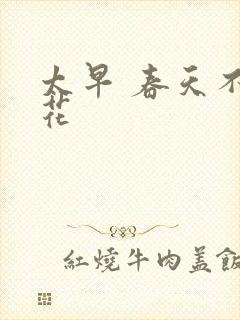 太早 春天不
花
紅燒牛肉蓋飯